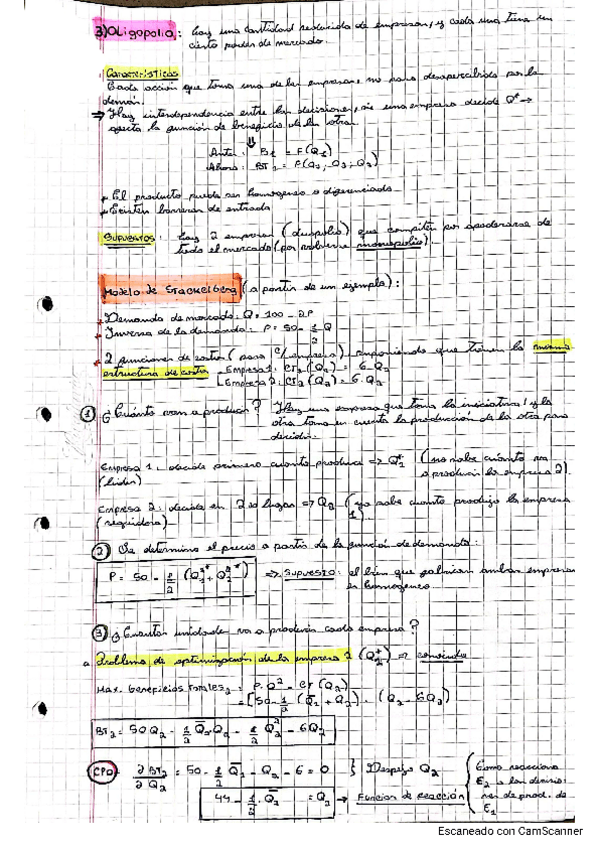 3) Oligopolio: hay una cantidad reducida de empresas, y cada una tiene un
cierto poder de mercado.
Características
Cada acción que toma una de las empresas, no pasa desapercibida por la
demás.
⇒ Hay interdependencia entre las decisiones, si una empresa decide Q* →
afecta la función de beneficio de la otra.
⇓
Antes: B1 = F(Q1)
Ahora: BT1 = F(Q1; Q2; Q3)
El producto puede ser homogéneo o diferenciado
Existen barreras de entrada
Supuestos: hay 2 empresas (duopolio) que compiten por apoderarse de
todo el mercado (por volverse monopolio).
Modelo de Stackelberg (a partir de un ejemplo):
Demanda de mercado: Q = 100 - 2P
Inversa de la demanda: P = 50 - 1/2 Q
2 funciones de costos (para c/empresa) suponiendo que tienen la misma
estructura de costos
Empresa 1: CT1 (Q1) = 6·Q1
Empresa 2: CT2 (Q2) = 6·Q2
① ¿Cuánto van a producir? Hay una empresa que toma la iniciativa, y la
otra toma en cuenta la producción de la otra para
decidir.
Empresa 1: decide primero cuanto produce => Q1* (no sabe cuánto va
(líder) a producir la empresa 2).
Empresa 2: decide en 2do lugar => Q2 (ya sabe cuanto produjo la empresa
(seguidora) 1).
② Se determina el precio a partir de la función de demanda:
P = 50 - 1/2 (Q1* + Q2*) => Supuesto: el bien que fabrican ambas empresas
es homogéneo.
③ ¿Cuántas unidades va a producir cada empresa?
a Problema de optimización de la empresa 2 (Q2*) =>
Max. Beneficios Totales2 = P·Q2 - CT(Q2)
= [50 - 1/2 (Q̄1 + Q2)] · (Q2 - 6Q2)
BT2 = 50Q2 - 1/2 Q̄1·Q2 - 1/2 Q2² - 6Q2
CPO ∂BT2/∂Q2 = 50 - 1/2 Q̄1 - Q2 - 6 = 0 } Despejo Q2
44 - 1/2 · Q̄1 = Q2 → Función de Reacción
{ Como reacciona
E2 a las decisio-
nes de prod. de
E1
Escaneado con CamScanner